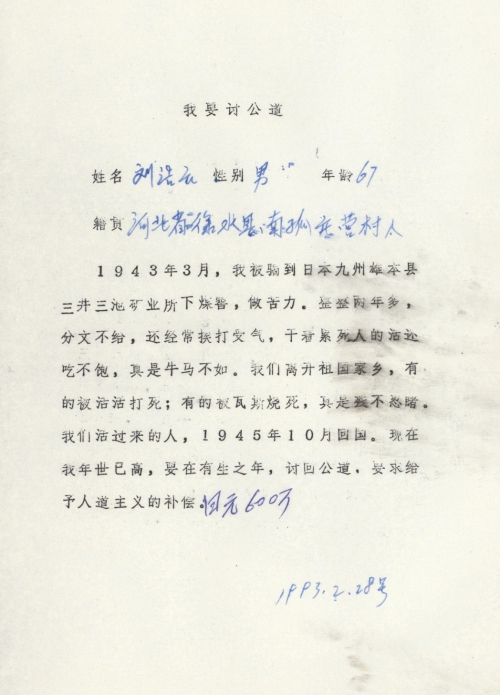 我要讨公道
姓名 刘浩云 性别 男 年龄 67
籍贯 河北省徐水县南孤庄营村人
1943年3月，我被骗到日本九州雄本县
三井三池矿业所下煤窑，做苦力。整整两年多，
分文不给，还经常挨打受气，干着累死人的活还
吃不饱，真是牛马不如。我们离开祖国家乡，有
的被活活打死；有的被瓦斯烧死，真是残不忍睹。
我们活过来的人，1945年10月回国。现在
我年世已高，要在有生之年，讨回公道，要求给
予人道主义的补偿。日元600万
1993.2.28号